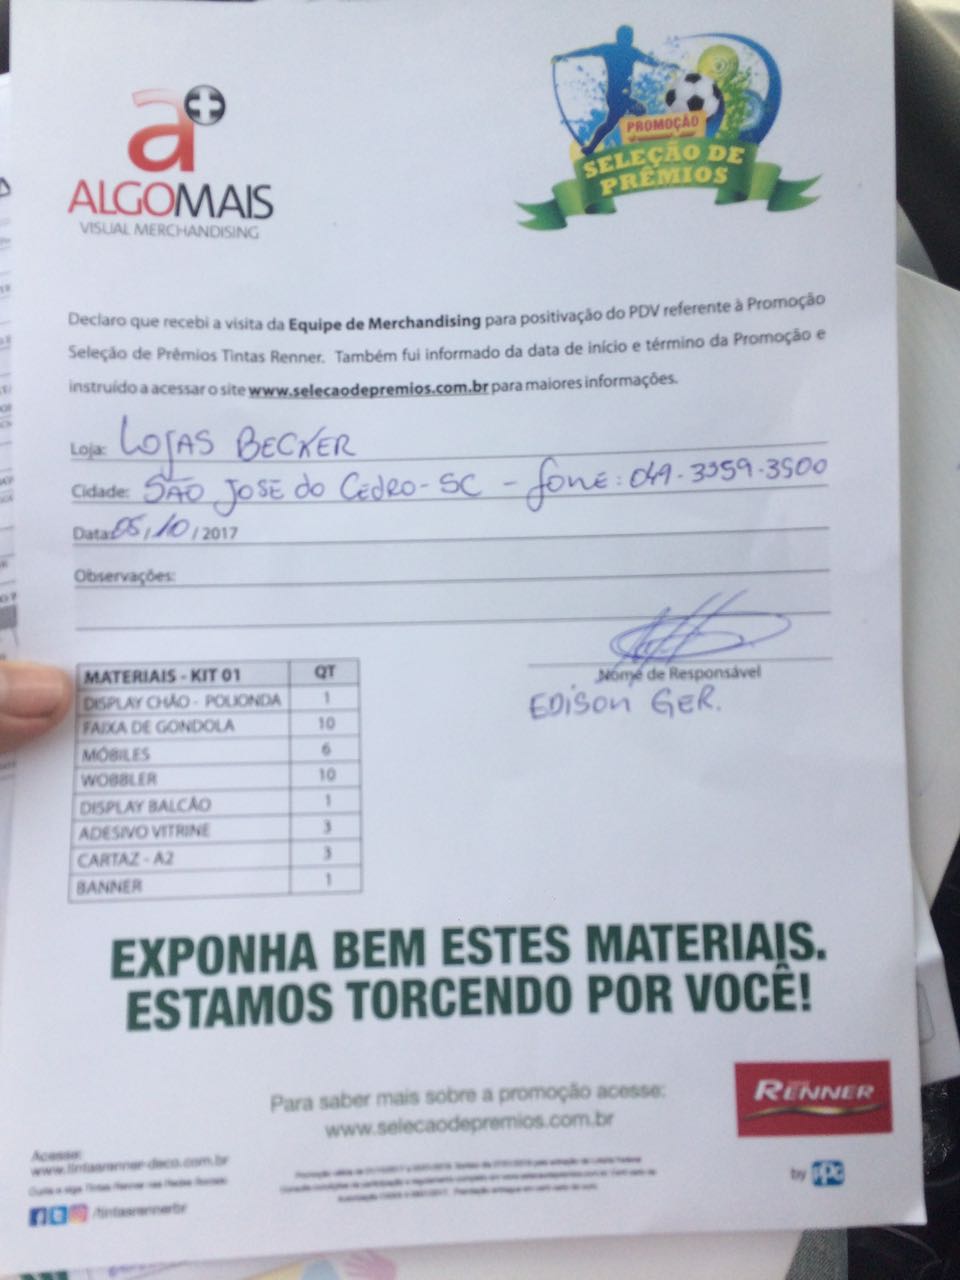 a+
ALGOMAIS
VISUAL MERCHANDISING
PROMOÇÃO
SELEÇÃO DE
PRÊMIOS
Declaro que recebi a visita da Equipe de Merchandising para positivação do PDV referente à Promoção
Seleção de Prêmios Tintas Renner. Também fui informado da data de início e término da Promoção e
instruído a acessar o site www.selecaodepremios.com.br para maiores informações.
Loja: LOJAS BECKER
Cidade: SÃO JOSE do CEDRO - SC - fone: 049-3359-3500
Data: 05/10/2017
Observações:
Nome de Responsável
EDISON GER.
MATERIAIS - KIT 01 QT
DISPLAY CHÃO - POLIONDA 1
FAIXA DE GONDOLA 10
MÓBILES 6
WOBBLER 10
DISPLAY BALCÃO 1
ADESIVO VITRINE 3
CARTAZ - A2 3
BANNER 1
EXPONHA BEM ESTES MATERIAIS.
ESTAMOS TORCENDO POR VOCÊ!
Para saber mais sobre a promoção acesse:
www.selecaodepremios.com.br
RENNER
by PPG
Acesse:
www.tintasrenner-deco.com.br
Curta e siga Tintas Renner nas Redes Sociais
/tintasrennerbr